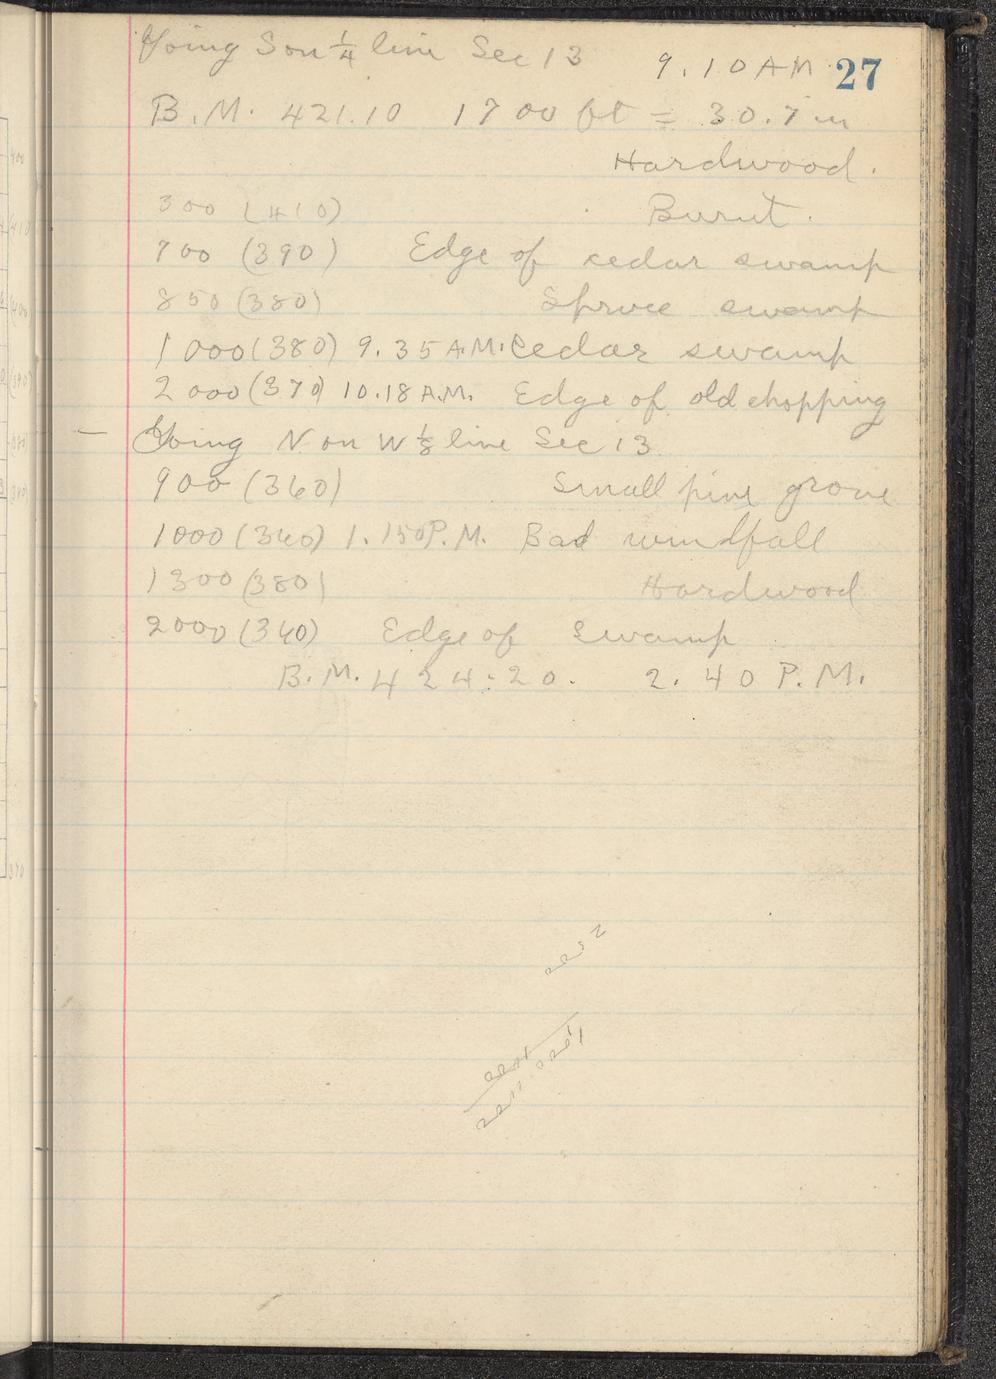 Going S on 1/4 line Sec 13 9.10 AM 27
B.M. 421.10 1700 ft = 30.7 in
Hardwood.
300 (410) Burnt.
700 (390) Edge of cedar swamp
850 (380) Spruce swamp
1000 (380) 9.35 A.M. Cedar swamp
2000 (370) 10.18 A.M. Edge of old chopping
— Going N on W 1/8 line Sec 13
900 (360) Small pine grove
1000 (360) 1.15 P.M. Bad windfall
1300 (380) Hardwood
2000 (360) Edge of swamp
B.M. 424.20. 2.40 P.M.